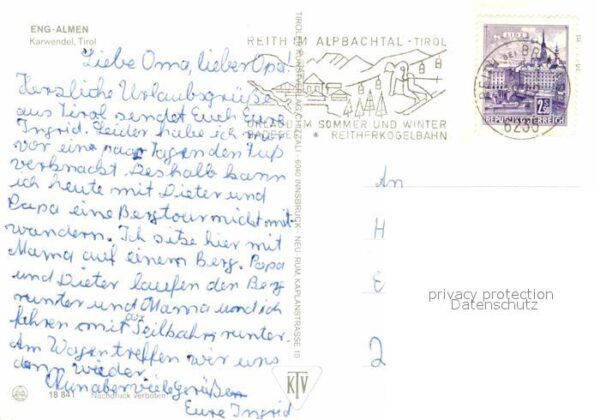 ENG-ALMEN
Karwendel, Tirol
Liebe Oma, lieber Opa!
Herzliche Urlaubsgrüße
aus Tirol sendet Euch Eure
Ingrid. Leider habe ich mir
vor ein paar Tagen den Fuß
verknackt. Deshalb kann
ich heute mit Dieter und
Papa eine Bergtour nicht mit
wandern. Ich sitze hier mit
Mama auf einem Berg. Papa
und Dieter laufen den Berg
runter und Mama und ich
fahren mit der Seilbahn runter.
Am Wagen treffen wir uns
dann wieder.
Nun aber viele grüße
Eure Ingrid
18 841 Nachdruck verboten
6040 INNSBRUCK · NEU-RUM, KAPLANSTRASSE
KTV
REITH IM ALPBACHTAL · TIROL
URLAUB IM SOMMER UND WINTER
BADESEE * REITHERKOGELBAHN
REITH BEI
6235
2 S
REPUBLIK ÖSTERREICH
An
H
E
2
privacy protection
Datenschutz